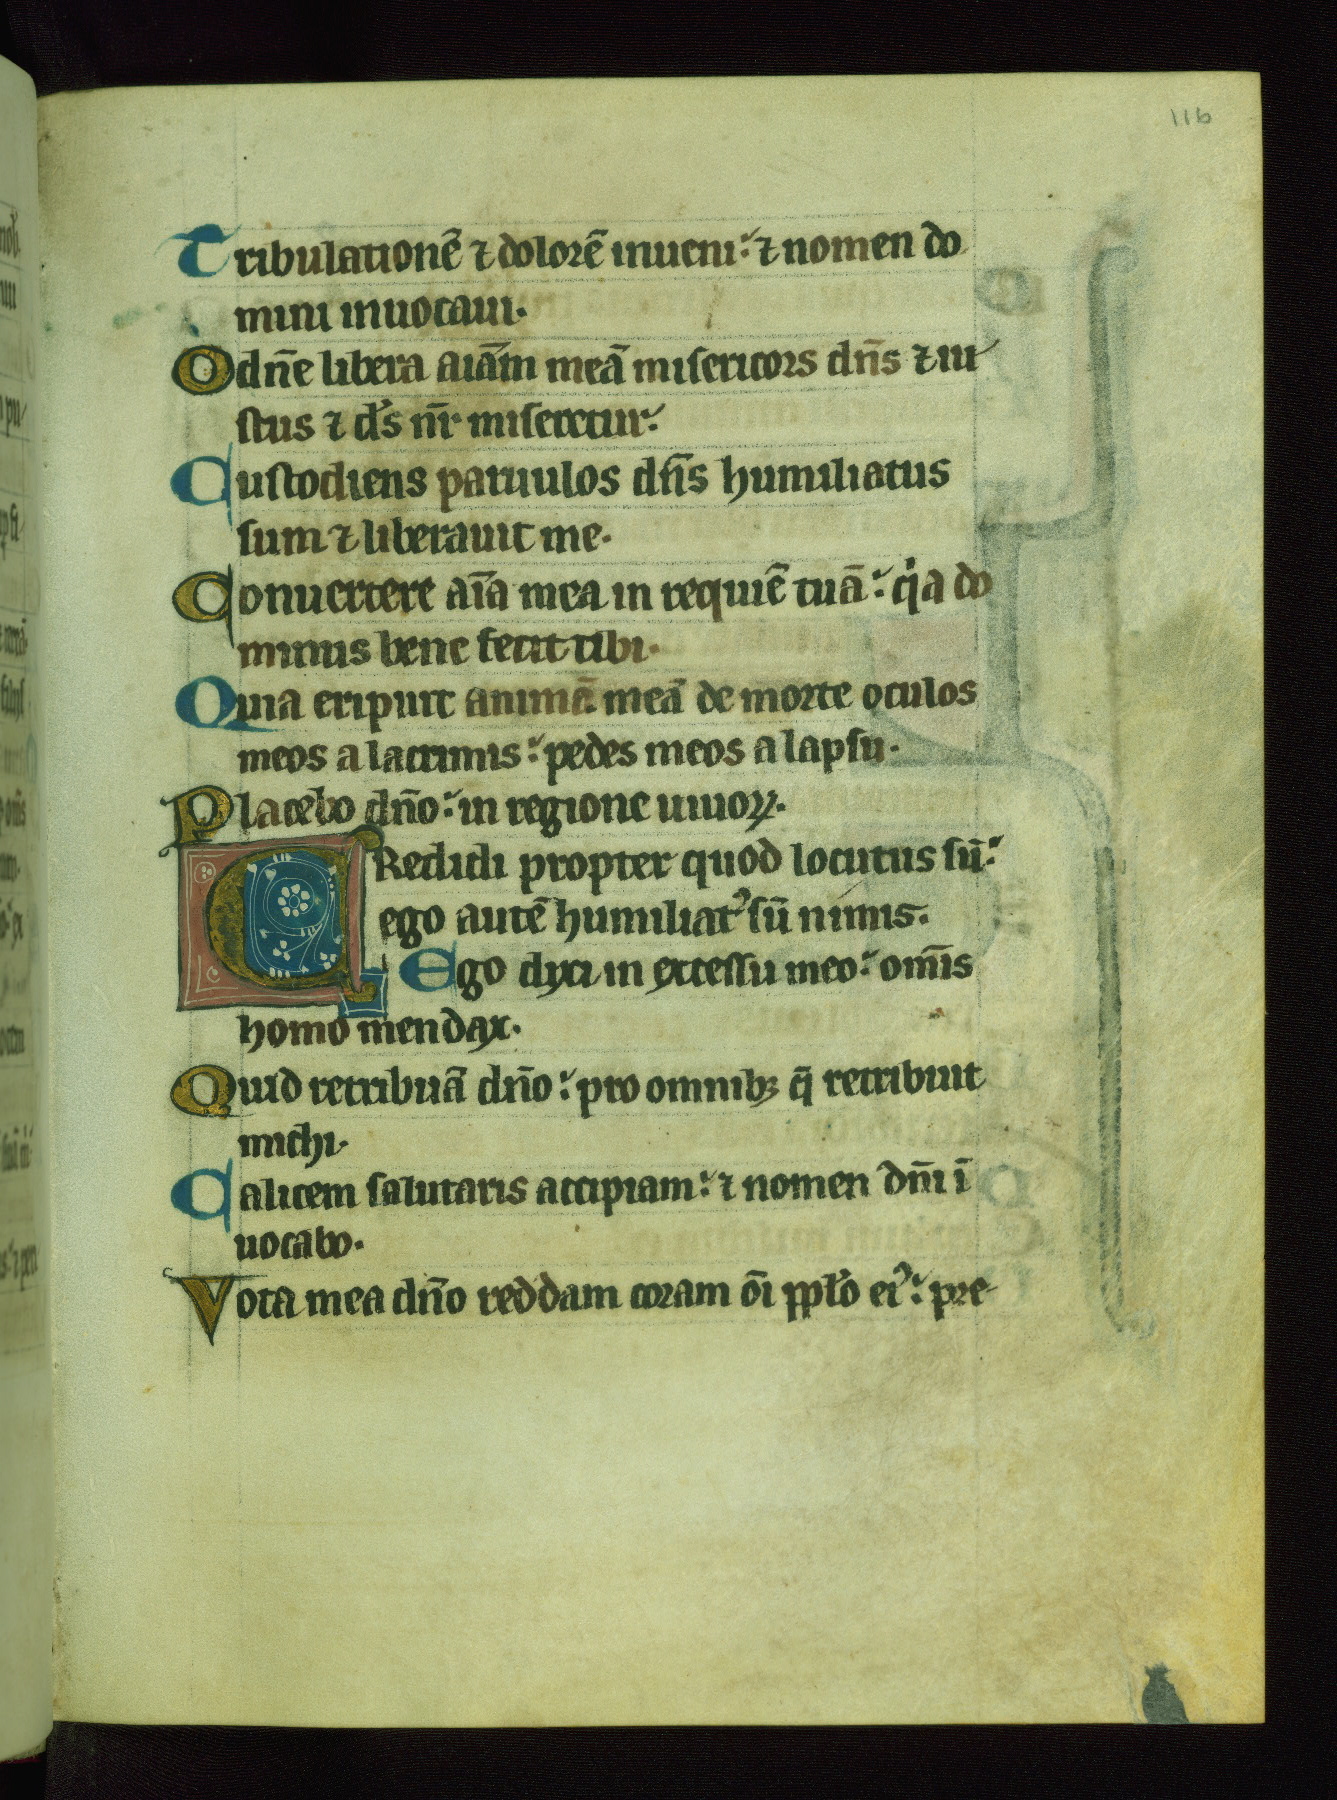 116
Tribulationē ⁊ dolorē inueni: ⁊ nomen do
mini inuocaui.
O dn̄e libera aīam meā misericors dn̄s ⁊ iu
stus ⁊ ds̄ nr̄ miseretur.
Custodiens paruulos dn̄s humiliatus
sum ⁊ liberauit me.
Conuertere aīa mea in requiē tuā: qia do
minus bene fecit tibi.
Quia eripuit animā meā de morte oculos
meos a lacrimis: pedes meos a lapsu.
Placebo dn̄o: in regione uiuoꝝ.
CRedidi propter quod locutus sū:
ego autē humiliatꝰ sū nimis.
Ego dixi in excessu meo: om̄is
homo mendax.
Quid retribuā dn̄o: pro omnibꝫ q̄ retribuit
michi.
Calicem salutaris accipiam: ⁊ nomen dn̄i ī
uocabo.
Vota mea dn̄o reddam coram ōi ppl̄o eiꝰ: pre-